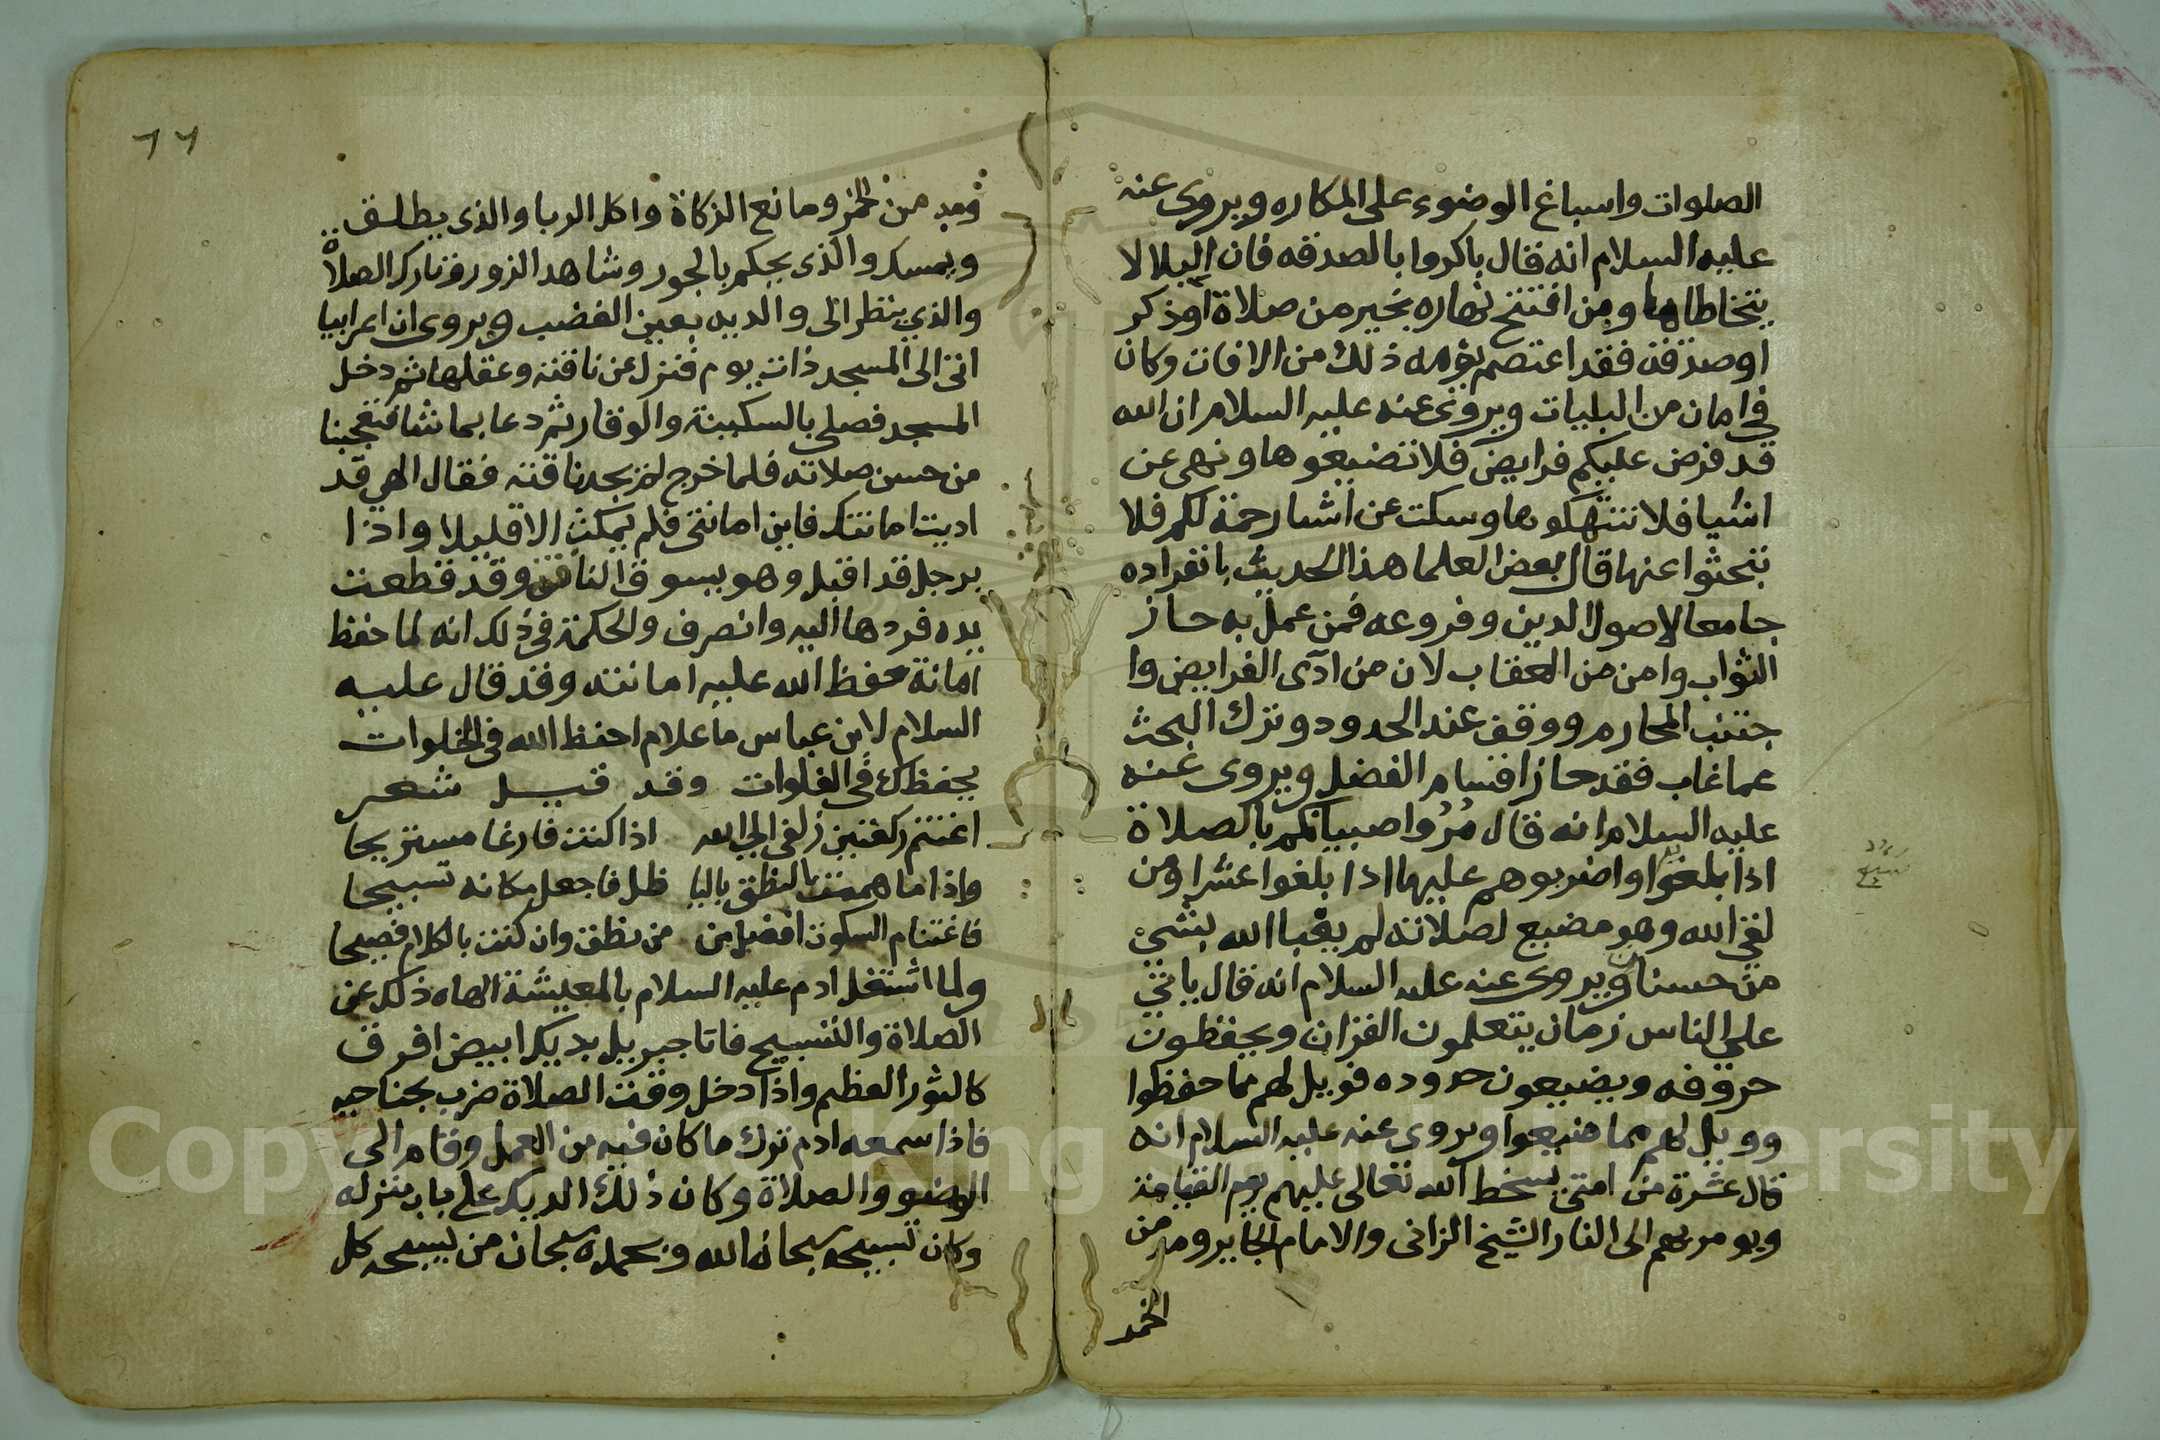 الصلوات واسباغ الوضوء على المكاره ويروى عنه
عليه السلام انه قال باكروا بالصدقه فان البلا لا
يتخاطاها ومن افتتح نهاره بخير من صلاة او ذكر
او صدقة فقد اعتصم يومه ذلك من الافات وكان
في امان من البليات ويروى عنه عليه السلام ان الله
قد فرض عليكم فرايض فلا تضيعوها ونهى عن
اشيا فلا تنتهكوها وسكت عن اشيا رحمة لكم فلا
تبحثوا عنها قال بعض العلما هذا الحديث بانفراده
جامعا لاصول الدين وفروعه فمن عمل به حاز
الثواب وامن من العقاب لان من ادى الفرايض وا
جتنب المحارم ووقف عند الحدود وترك البحث
عما غاب فقد حاز اقسام الفضل ويروى عنه
عليه السلام انه قال مُرُوا صبيانكم بالصلاة
اذا بلغوا واضربوهم عليها اذا بلغوا عشرا ومن
لقي الله وهو مضيع لصلاته لم يعبا الله بشيء
من حسناته ويروى عنه عليه السلام انه قال ياتي
على الناس زمان يتعلمون القران ويحفظون
حروفه ويضيعون حدوده فويل لهم مما حفظوا
وويل لهم مما ضيعوا ويروى عنه عليه السلام انه
قال عشرة من امتي يسخط الله تعالى عليهم يوم القيامة
ويومر بهم الى النار الشيخ الزانى والامام الجاير ومدمن
الخمر
٦٦
ومدمن الخمر ومانع الزكاة واكل الربا والذى يطلق
ويمسك والذى يحكم بالجور وشاهد الزور وتارك الصلاة
والذي ينظر الى والديه بعين الغضب ويروى ان اعرابيا
اتى الى المسجد ذات يوم فنزل عن ناقته وعقلها ثم دخل
المسجد فصلى بالسكينة والوقار ثم دعا بما شا فتعجبنا
من حسن صلاته فلما خرج لم يجد ناقته فقال الهي قد
اديت امانتك فاين امانتى فلم يمكث الا قليلا واذا
برجل قد اقبل وهو يسوق الناقة وقد قطعت
يده فردها اليه وانصرف والحكمة في ذلك انه لما حفظ
امانة حفظ الله عليه امانته وقد قال عليه
السلام لابن عباس ما غلام احفظ الله في الخلوات
يحفظك في الفلوات وقد قيل شعر
اغتنم ركعتين زلفى الى الله اذا كنت فارغا مستريحا
واذا ما هممت بالنطق بالبا طل فاجعل مكانه تسبيحا
فاغتنام السكوت افضل من من نطق وان كنت بالكلام فصيحا
ولما اشتغل ادم عليه السلام بالمعيشة الهاه ذلك عن
الصلاة والتسبيح فاتا جبريل بديك ابيض افرق
كالثور العظيم واذا دخل وقت الصلاة ضرب بجناحيه
فاذا سمعه ادم ترك ما كان فيه من العمل وقام الى
الوضو والصلاة وكان ذلك الديك على باب منزله
وكان تسبيحه سبحان الله وبحمده سبحان من يسبحه كل
Copy King Saud University